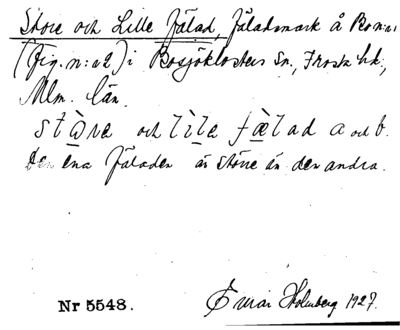 Store och Lille Fälad, Fäladsmark å
(Fig. n:o 2) i Bosjöklosters Sn., Frosta hd.,
Mlm. län.
stò̱ra och lìḻa fæ̱̀lad a och b.
Den ena Fäladen är större än den andra.
Nr 5548. Einar Holmberg 1927.